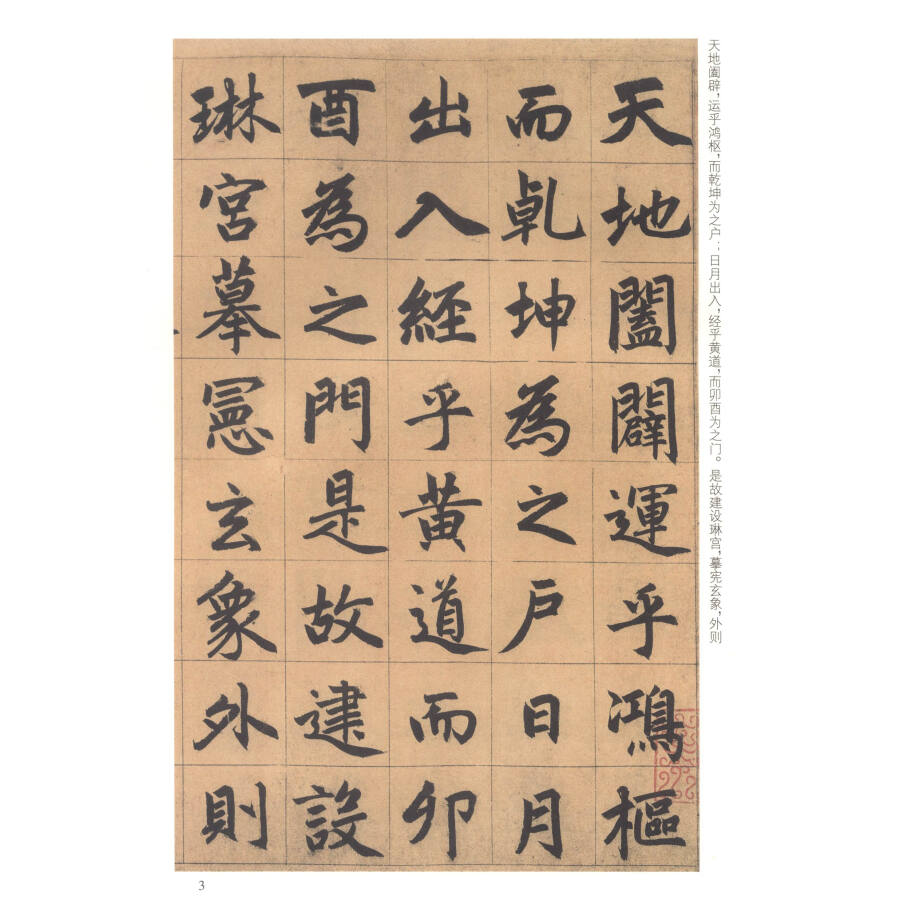 天地阖辟，运乎鸿枢，而乾坤为之户；日月出入，经乎黄道，而卯酉为之门。是故建设琳宫，摹宪玄象，外则
天地闔闢運乎鴻樞
而乹坤為之戶日月
出入經乎黃道而卯
酉為之門是故建設
琳宮摹憲玄象外則
3